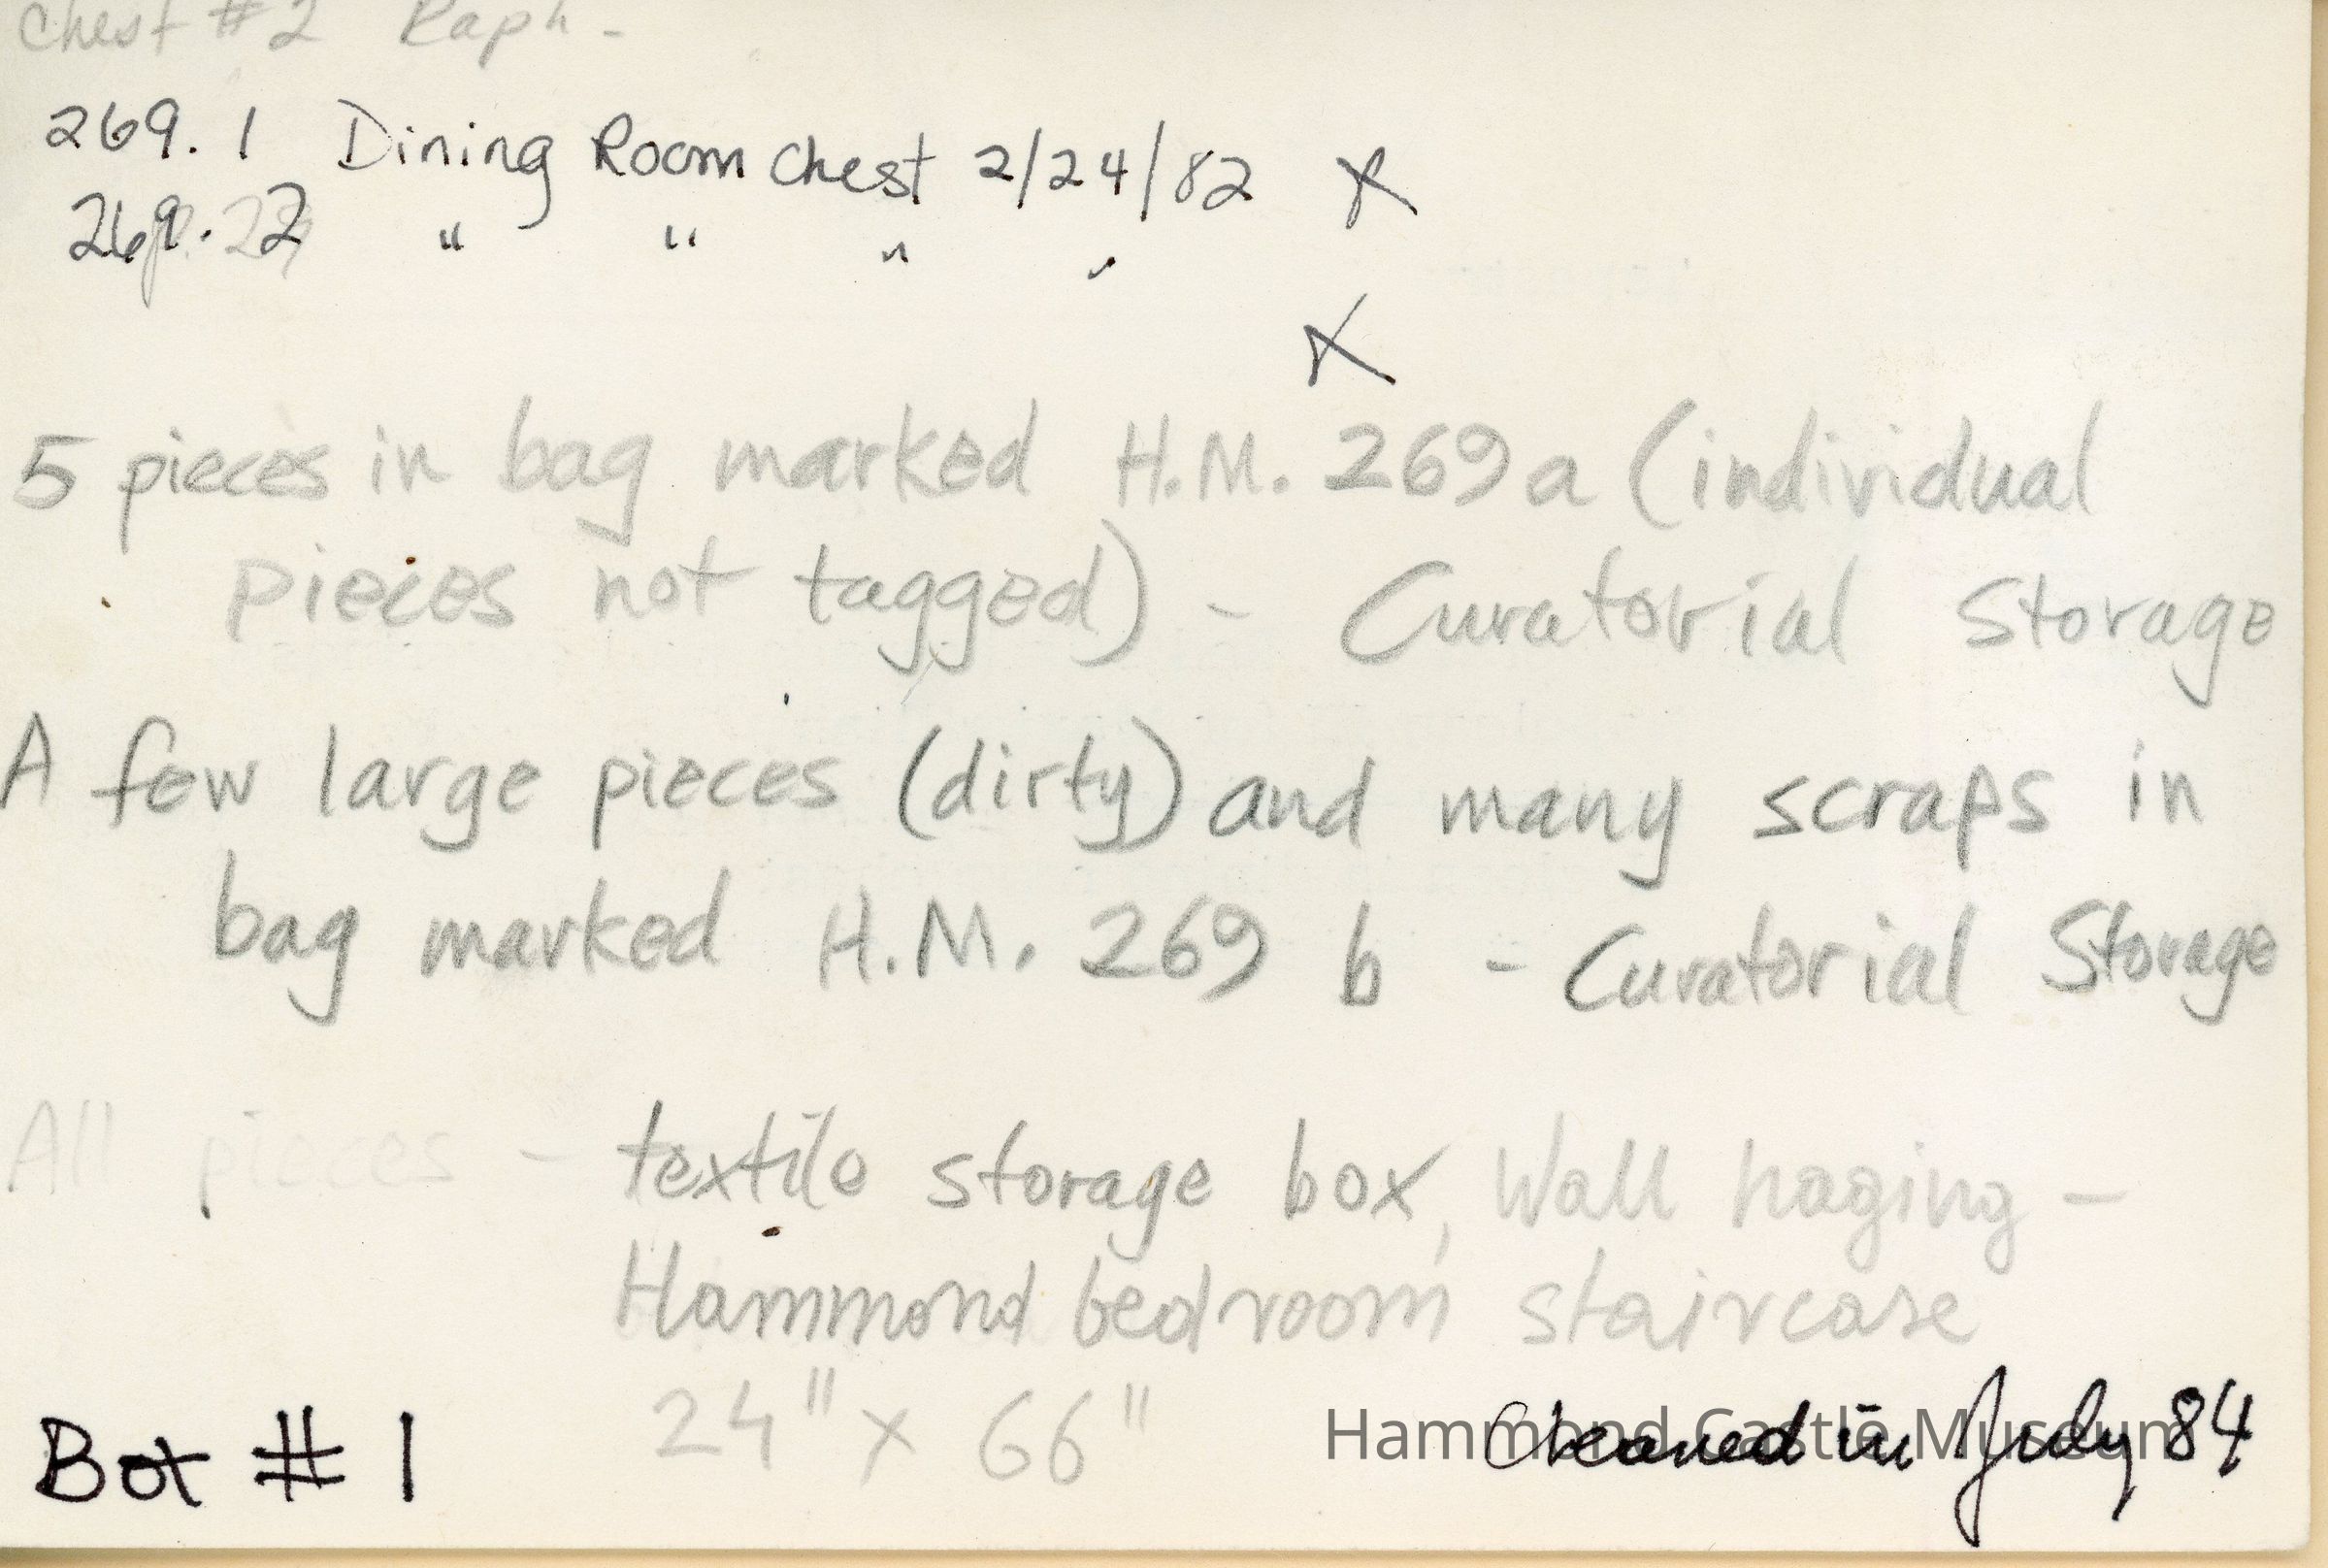 Chest #2 Raph -
269.1 Dining Room Chest 2/24/82 X
269.22 " " " "
X
5 pieces in bag marked H.M. 269a (individual
pieces not tagged) - Curatorial Storage
A few large pieces (dirty) and many scraps in
bag marked H.M. 269 b - Curatorial Storage
All pieces - textile storage box, Wall haging -
Hammond bedroom staircase
24" x 66"
Box # 1
Cleaned in July 84
Hammond Castle Museum